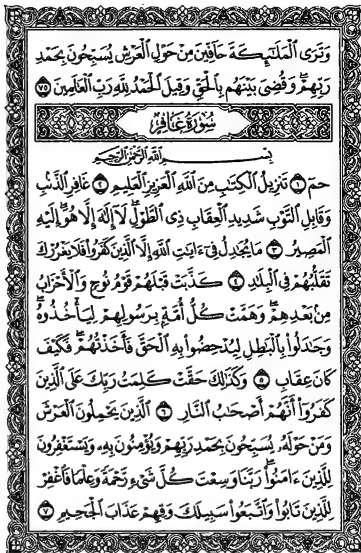 وَتَرَى الْمَلَٰٓئِكَةَ حَآفِّينَ مِنْ حَوْلِ الْعَرْشِ يُسَبِّحُونَ بِحَمْدِ
رَبِّهِمْ وَقُضِىَ بَيْنَهُم بِالْحَقِّ وَقِيلَ الْحَمْدُ لِلَّهِ رَبِّ الْعَٰلَمِينَ ٧٥
سُورَةُ غَافِرٍ
بِسْمِ اللَّهِ الرَّحْمَٰنِ الرَّحِيمِ
حمٓ ١ تَنزِيلُ الْكِتَٰبِ مِنَ اللَّهِ الْعَزِيزِ الْعَلِيمِ ٢ غَافِرِ الذَّنۢبِ
وَقَابِلِ التَّوْبِ شَدِيدِ الْعِقَابِ ذِى الطَّوْلِ لَآ إِلَٰهَ إِلَّا هُوَ إِلَيْهِ
الْمَصِيرُ ٣ مَا يُجَٰدِلُ فِىٓ ءَايَٰتِ اللَّهِ إِلَّا الَّذِينَ كَفَرُوا فَلَا يَغْرُرْكَ
تَقَلُّبُهُمْ فِى الْبِلَٰدِ ٤ كَذَّبَتْ قَبْلَهُمْ قَوْمُ نُوحٍ وَالْأَحْزَابُ
مِنۢ بَعْدِهِمْ وَهَمَّتْ كُلُّ أُمَّةٍۭ بِرَسُولِهِمْ لِيَأْخُذُوهُ
وَجَٰدَلُوا بِالْبَٰطِلِ لِيُدْحِضُوا بِهِ الْحَقَّ فَأَخَذْتُهُمْ فَكَيْفَ
كَانَ عِقَابِ ٥ وَكَذَٰلِكَ حَقَّتْ كَلِمَتُ رَبِّكَ عَلَى الَّذِينَ
كَفَرُوٓا أَنَّهُمْ أَصْحَٰبُ النَّارِ ٦ الَّذِينَ يَحْمِلُونَ الْعَرْشَ
وَمَنْ حَوْلَهُۥ يُسَبِّحُونَ بِحَمْدِ رَبِّهِمْ وَيُؤْمِنُونَ بِهِۦ وَيَسْتَغْفِرُونَ
لِلَّذِينَ ءَامَنُوا رَبَّنَا وَسِعْتَ كُلَّ شَىْءٍ رَّحْمَةً وَعِلْمًا فَاغْفِرْ
لِلَّذِينَ تَابُوا وَاتَّبَعُوا سَبِيلَكَ وَقِهِمْ عَذَابَ الْجَحِيمِ ٧